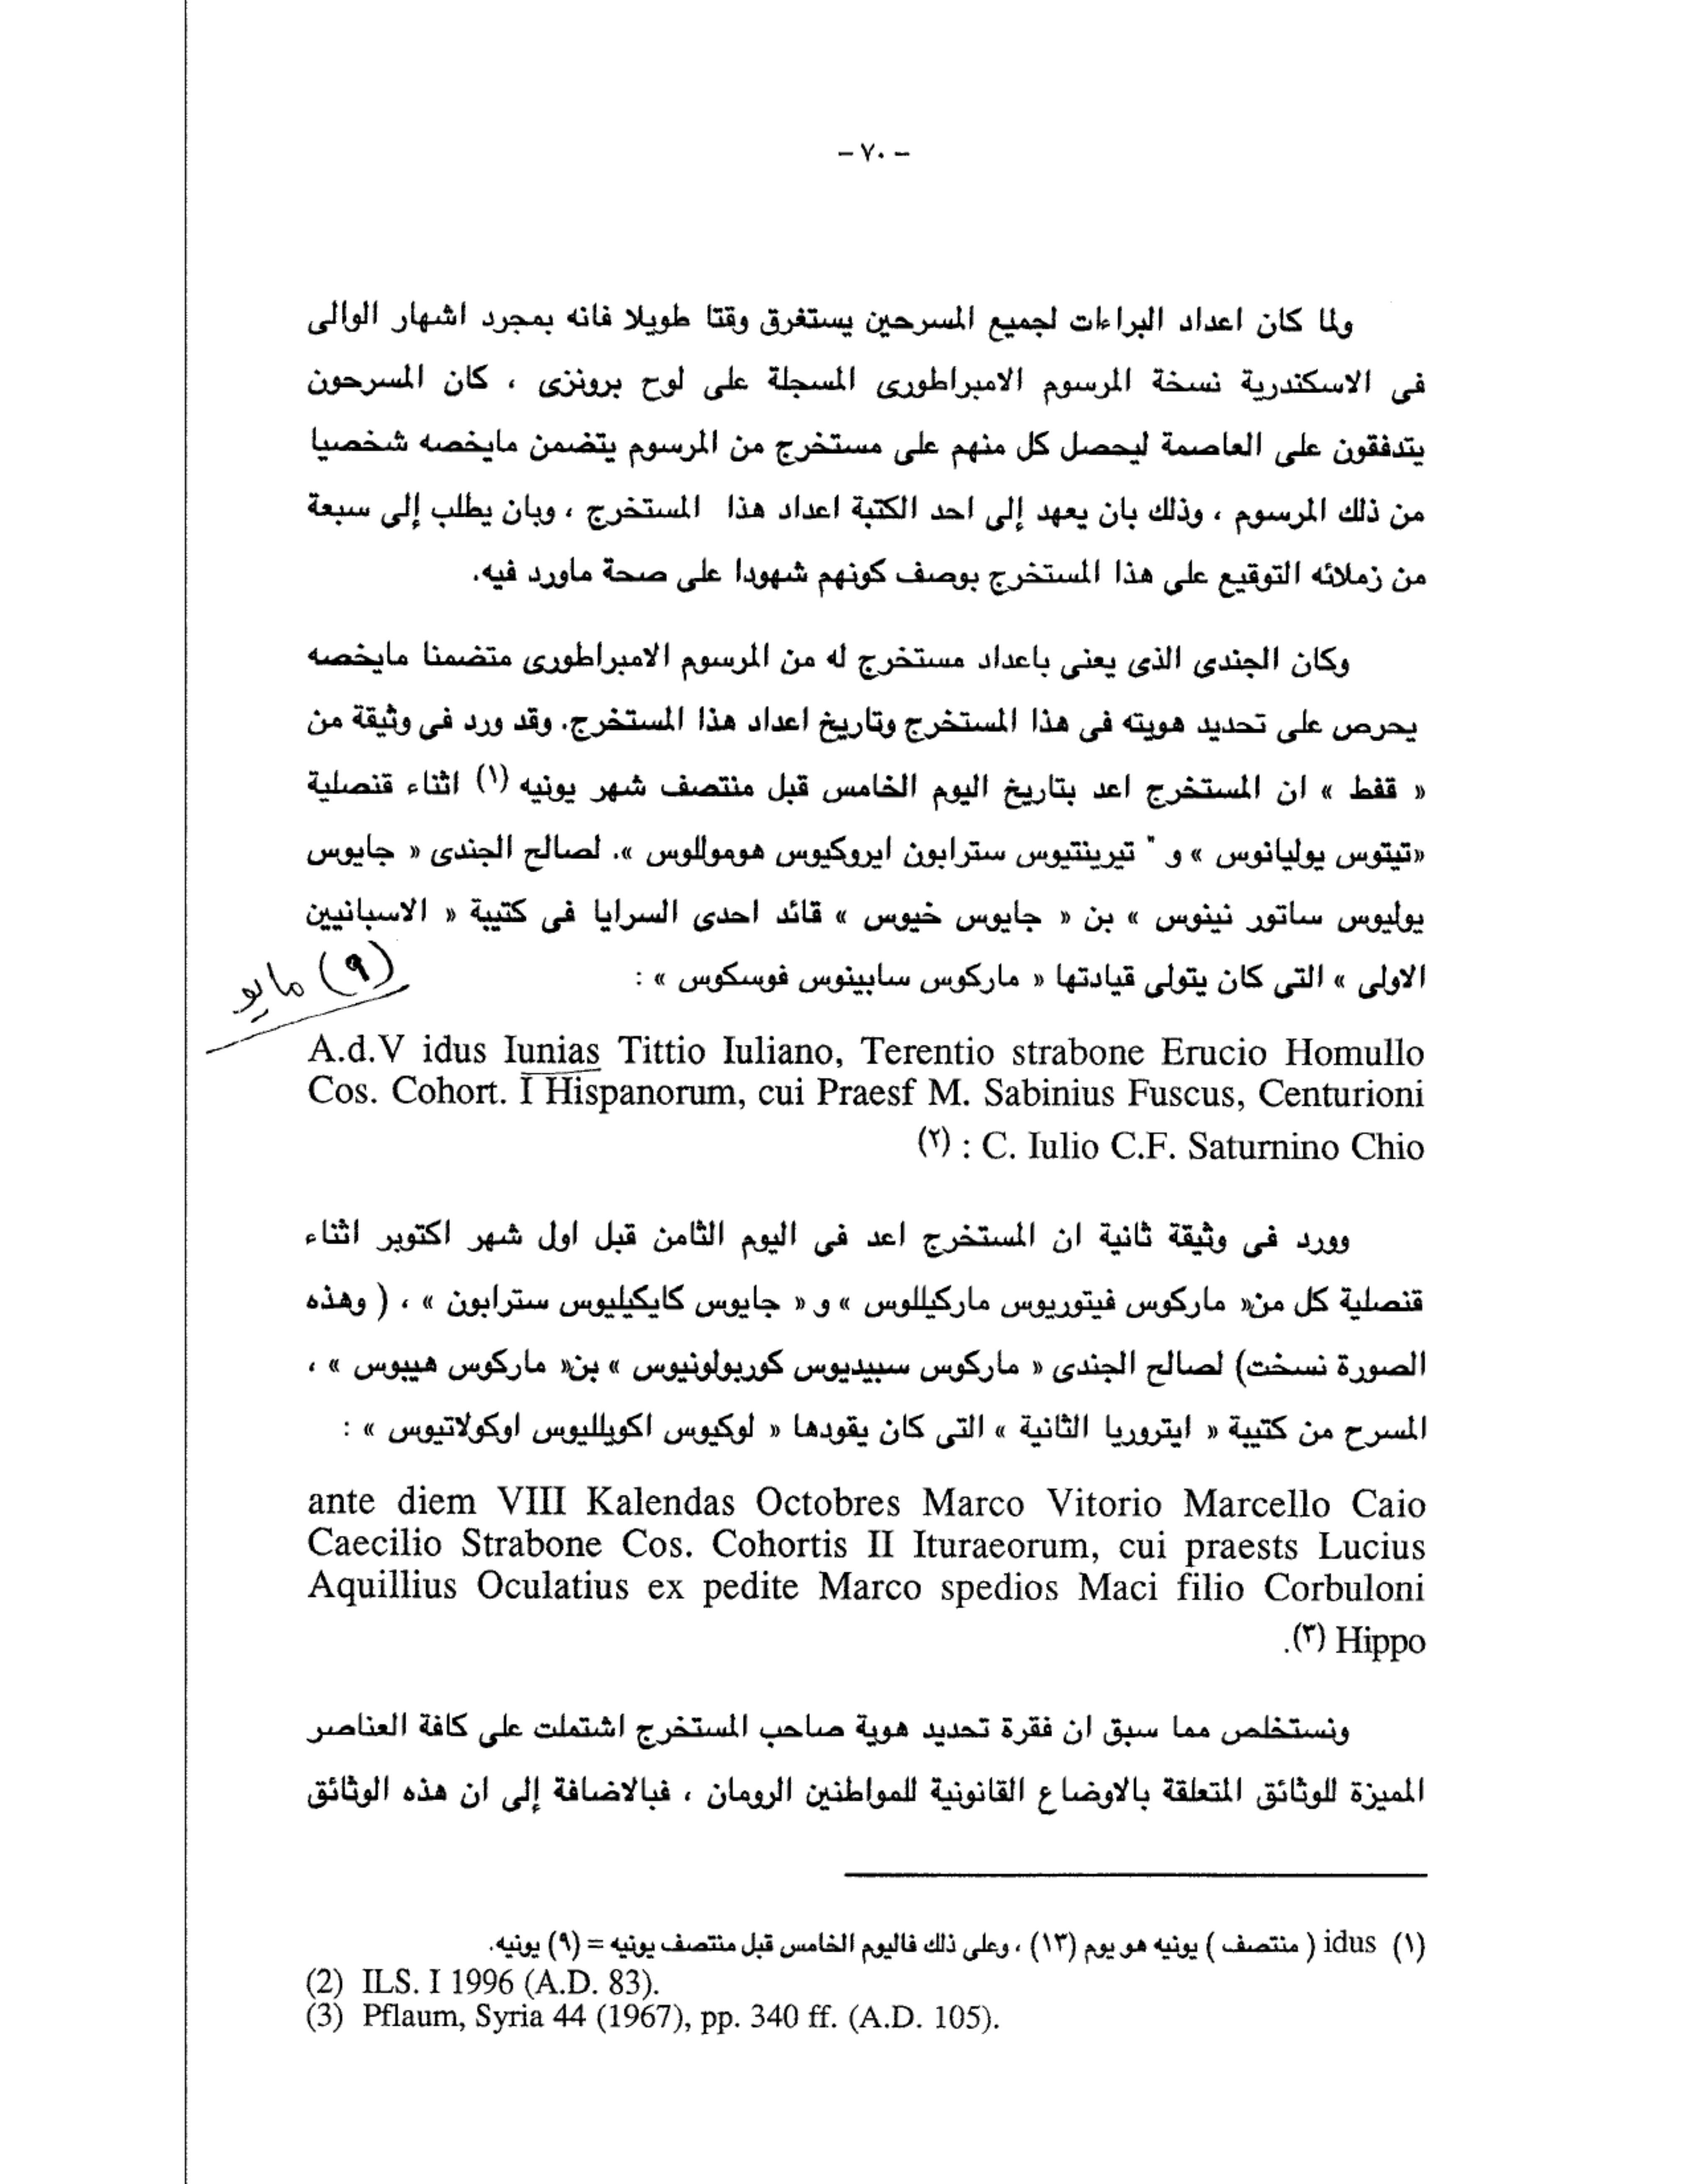 – ٧٠ –
ولما كان اعداد البراءات لجميع المسرحين يستغرق وقتا طويلا فانه بمجرد اشهار الوالى
فى الاسكندرية نسخة المرسوم الامبراطورى المسجلة على لوح برونزى ، كان المسرحون
يتدفقون على العاصمة ليحصل كل منهم على مستخرج من المرسوم يتضمن مايخصه شخصيا
من ذلك المرسوم ، وذلك بان يعهد إلى احد الكتبة اعداد هذا المستخرج ، وبان يطلب إلى سبعة
من زملائه التوقيع على هذا المستخرج بوصف كونهم شهودا على صحة ماورد فيه.
وكان الجندى الذى يعنى باعداد مستخرج له من المرسوم الامبراطورى متضمنا مايخصه
يحرص على تحديد هويته فى هذا المستخرج وتاريخ اعداد هذا المستخرج. وقد ورد فى وثيقة من
« قفط » ان المستخرج اعد بتاريخ اليوم الخامس قبل منتصف شهر يونيه (١) اثناء قنصلية
«تيتوس يوليانوس » و " تيرينتيوس سترابون ايروكيوس هوموللوس ». لصالح الجندى « جايوس
يوليوس ساتور نينوس » بن « جايوس خيوس » قائد احدى السرايا فى كتيبة « الاسبانيين
الاولى » التى كان يتولى قيادتها « ماركوس سابينوس فوسكوس » :
(٩) مايو
A.d.V idus Iunias Tittio Iuliano, Terentio strabone Erucio Homullo
Cos. Cohort. I Hispanorum, cui Praesf M. Sabinius Fuscus, Centurioni
(٢) : C. Iulio C.F. Saturnino Chio
وورد فى وثيقة ثانية ان المستخرج اعد فى اليوم الثامن قبل اول شهر اكتوبر اثناء
قنصلية كل من« ماركوس فيتوريوس ماركيللوس » و « جايوس كايكيليوس سترابون » ، ( وهذه
الصورة نسخت) لصالح الجندى « ماركوس سبيديوس كوربولونيوس » بن« ماركوس هيبوس » ،
المسرح من كتيبة « ايتروريا الثانية » التى كان يقودها « لوكيوس اكويلليوس اوكولاتيوس » :
ante diem VIII Kalendas Octobres Marco Vitorio Marcello Caio
Caecilio Strabone Cos. Cohortis II Ituraeorum, cui praests Lucius
Aquillius Oculatius ex pedite Marco spedios Maci filio Corbuloni
.(٣) Hippo
ونستخلص مما سبق ان فقرة تحديد هوية صاحب المستخرج اشتملت على كافة العناصر
المميزة للوثائق المتعلقة بالاوضاع القانونية للمواطنين الرومان ، فبالاضافة إلى ان هذه الوثائق
(١) idus ( منتصف ) يونيه هو يوم (١٣) ، وعلى ذلك فاليوم الخامس قبل منتصف يونيه = (٩) يونيه.
(2) ILS. I 1996 (A.D. 83).
(3) Pflaum, Syria 44 (1967), pp. 340 ff. (A.D. 105).